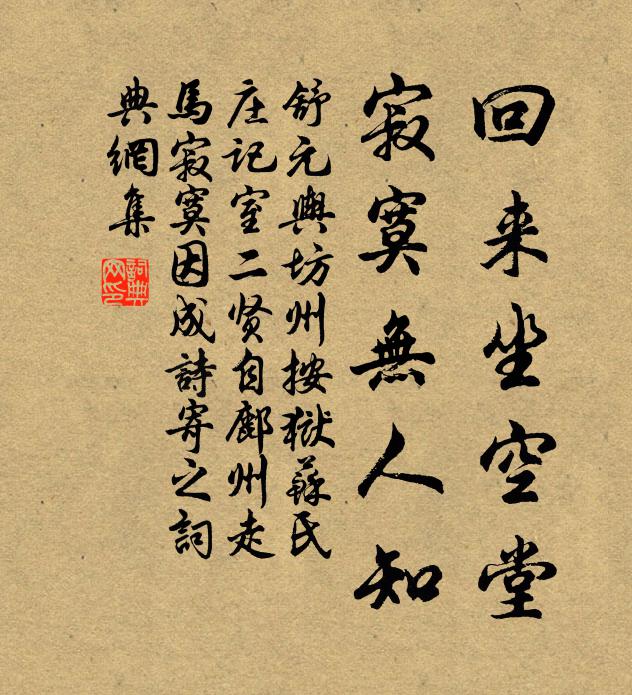 回来坐空堂
寂寞無人知
舒元輿坊州按獄蘇氏
庄记室二贤自鄜州走
馬寂寞因成詩寄之詞
典網集
詞典
网印